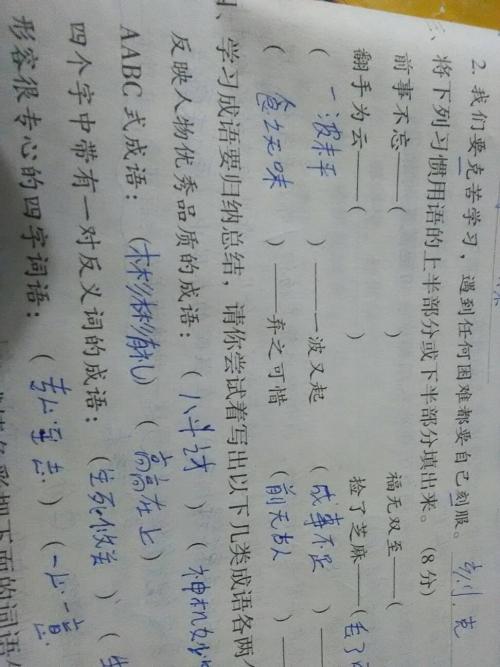 2. 我们要克苦学习，遇到任何困难都要自己刻服。 刻 克
、将下列习惯用语的上半部分或下半部分填出来。(8分)
前事不忘——( ) 福无双至——(
翻手为云——( ) 捡了芝麻——(丢了
(一波未平)——一波又起 (成事不足)——
(食之无味)——弃之可惜 (前无古人)——
、学习成语要归纳总结，请你尝试着写出以下几类成语各两
反映人物优秀品质的成语：(八斗才)(神机妙
AABC式成语：(彬彬有礼)(高高在上)
四个字中带有一对反义词的成语：(生死攸关)(生
形容很专心的四字词语：(专心致志)(一心一意)
下面的词语